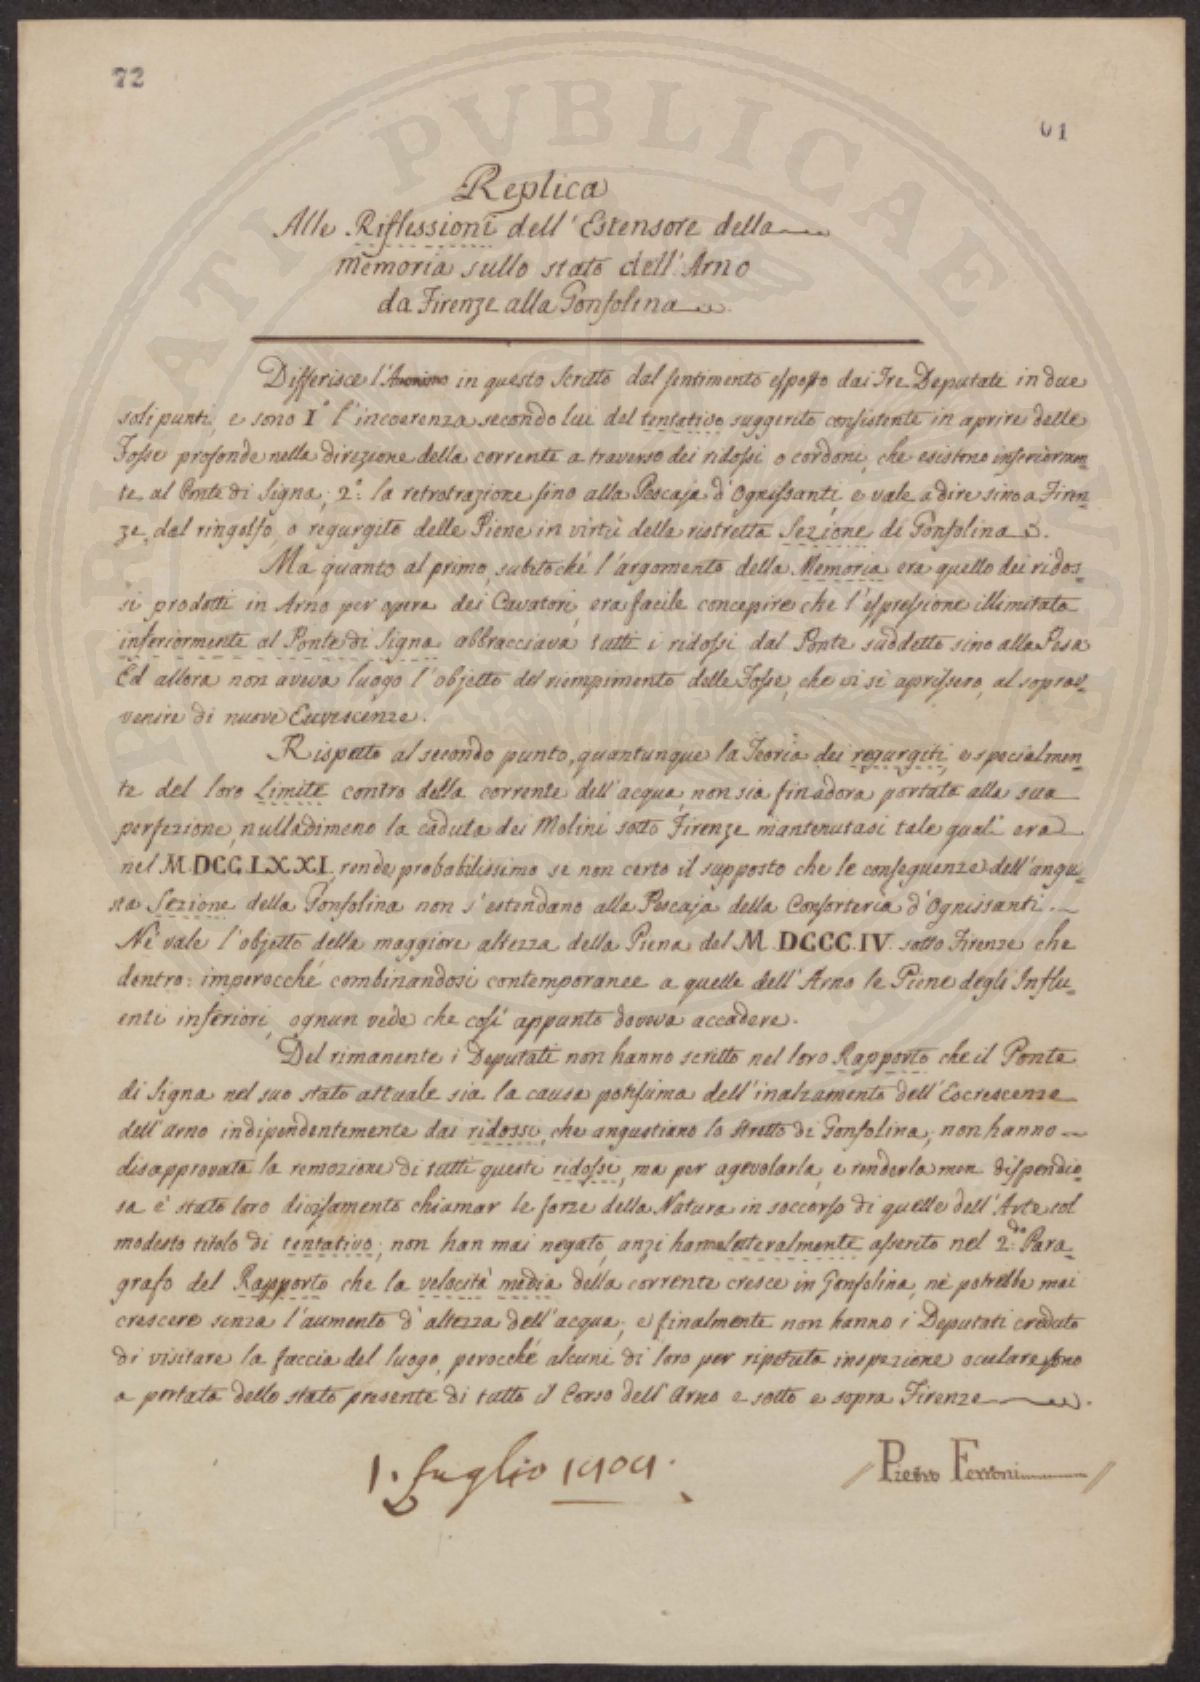 72
61
Replica
Alle Riflessioni dell'Estensore della
Memoria sullo stato dell'Arno
da Firenze alla Gonfolina
Differisce l'Anonimo in questo Scritto dal sentimento esposto dai Tre Deputati in due
soli punti, e sono I° l'incoerenza secondo lui del tentativo suggerito consistente in aprire delle
Fosse profonde nella direzione della corrente a traverso dei ridossi o cordoni, che esistono inferiormen-
te al Ponte di Signa; 2°. la retrotrazione sino alla Pescaja d'Ognissanti, e vale a dire sino a Firen-
ze, del ringolfo, o regurgito delle Piene in virtù della ristretta Sezione di Gonfolina.
Ma quanto al primo, subitoché l'argomento della Memoria era quello dei ridos-
si prodotti in Arno per opera dei Cavatori, era facile concepire che l'espressione illimitata
inferiormente al Ponte di Signa abbracciava tutti i ridossi dal Ponte suddetto sino alla Pesa
Ed allora non aveva luogo l'objetto del riempimento delle Fosse, che vi si aprissero, al soprav-
venire di nuove Escrescenze.
Rispetto al secondo punto, quantunque la Teoria dei regurgiti, e specialmen-
te del loro Limite contro della corrente dell'acqua, non sia finadora portata alla sua
perfezione, nulladimeno la caduta dei Molini sotto Firenze mantenutasi tale qual'era
nel MDCCLXXI, rende probabilissimo se non certo il supposto che le conseguenze dell'angu-
sta Sezione della Gonfolina non s'estendano alla Pescaja della Consorteria d'Ognissanti.
Nè vale l'objetto della maggiore altezza della Piena del MDCCCIV. sotto Firenze che
dentro: imperocché combinandosi contemporanee a quelle dell'Arno le Piene degli Influ-
enti inferiori, ognun vede che così appunto doveva accadere.
Del rimanente i Deputati non hanno scritto nel loro Rapporto che il Ponte
di Signa nel suo stato attuale sia la causa potissima dell'inalzamento dell'Escrescenze
dell'Arno indipendentemente dai ridossi, che angustiano lo stretto di Gonfolina; non hanno
disapprovata la remozione di tutti questi ridossi, ma per agevolarla, e renderla men dispendio-
sa è stato loro divisamento chiamar le forze della Natura in soccorso di quelle dell'Arte col
modesto titolo di tentativo; non han mai negato, anzi han letteralmente asserito nel 2.do Para-
grafo del Rapporto che la velocità media della corrente cresce in Gonfolina, nè potrebbe mai
crescere senza l'aumento d'altezza dell'acqua; e finalmente non hanno i Deputati creduto
di visitare la faccia del luogo, perocché alcuni di loro per ripetuta inspezione oculare sono
a portata dello stato presente di tutto il Corso dell'Arno e sotto e sopra Firenze.
1. Luglio 1909.
Pietro Ferroni